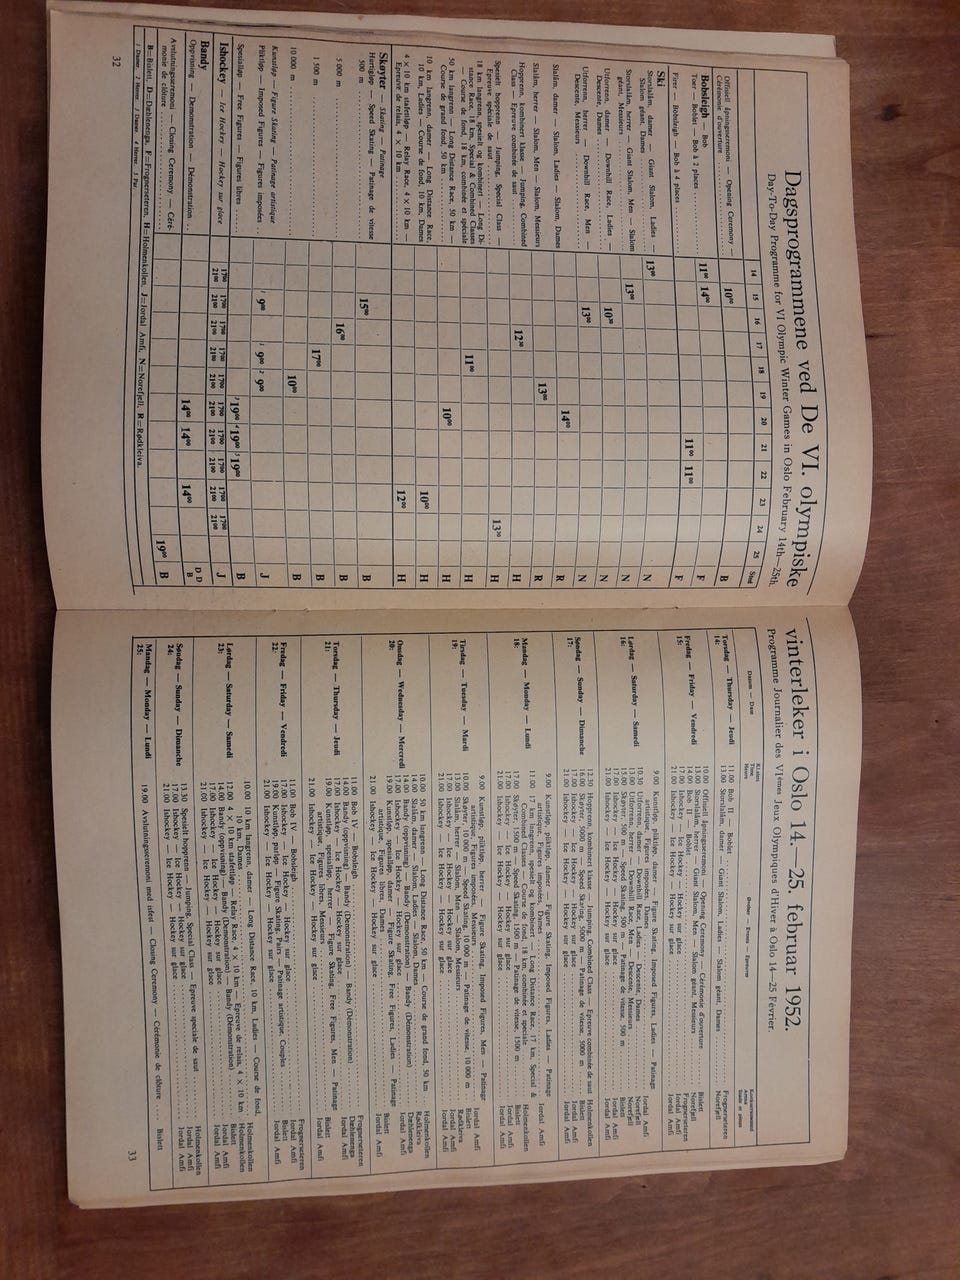 Dagsprogrammene ved De VI. olympiske
Day-To-Day Programme for VI Olympic Winter Games in Oslo February 14th—25th.
14 15 16 17 18 19 20 21 22 23 24 25 Sted
Offisiell åpningsseremoni — Opening Ceremony —
Cérémonie d'ouverture 10⁰⁰ B
Bobsleigh — Bob
Toer — Bob à 2 places 11⁰⁰ 14⁰⁰ F
Firer — Bobsleigh — Bob à 4 places 11⁰⁰ 11⁰⁰ F
Ski
Storslalåm, damer — Giant Slalom, Ladies —
Slalom géant, Dames 13⁰⁰ N
Storslalåm, herrer — Giant Slalom, Men — Slalom
géant, Messieurs 13⁰⁰ N
Utforrenn, damer — Downhill Race, Ladies —
Descente, Dames 10³⁰ N
Utforrenn, herrer — Downhill Race, Men —
Descente, Messieurs 13⁰⁰ N
Slalåm, damer — Slalom, Ladies — Slalom, Dames 14⁰⁰ R
Slalåm, herrer — Slalom, Men — Slalom Messieurs 13⁰⁰ R
Hopprenn, kombinert klasse — Jumping, Combined
Class — Epreuve combinée de saut 12³⁰ H
Spesielt hopprenn — Jumping, Special Class —
Epreuve spéciale de saut 13³⁰ H
18 km langrenn, spesielt og kombinert — Long Di-
stance Race, 18 km, Special & Combined Classes
— Course de fond, 18 km, combinée et spéciale 11⁰⁰ H
50 km langrenn — Long Distance Race, 50 km —
Course de grand fond, 50 km 10⁰⁰ H
10 km langrenn, damer — Long Distance Race,
10 km, Ladies — Course de fond, 10 km, Dames 10⁰⁰ H
4 × 10 km stafettløp — Relay Race, 4 × 10 km —
Epreuve de relais, 4 × 10 km 12⁰⁰ H
Skøyter — Skating — Patinage
Hurtigløp — Speed Skating — Patinage de vitesse
500 m 15⁰⁰ B
5 000 m 16⁰⁰ B
1 500 m 17⁰⁰ B
10 000 m 10⁰⁰ B
Kunstløp — Figure Skating — Patinage artistique
Pliktløp — Imposed Figures — Figures imposées ¹ 9⁰⁰ ¹ 9⁰⁰ ² 9⁰⁰ J
Spesialløp — Free Figures — Figures libres 19⁰⁰ 19⁰⁰ 19⁰⁰ B
Ishockey — Ice Hockey — Hockey sur glace 17⁰⁰ 21⁰⁰ 17⁰⁰ 21⁰⁰ 17⁰⁰ 21⁰⁰ 17⁰⁰ 21⁰⁰ 17⁰⁰ 21⁰⁰ 17⁰⁰ 21⁰⁰ 17⁰⁰ 21⁰⁰ 17⁰⁰ 21⁰⁰ 17⁰⁰ 21⁰⁰ 17⁰⁰ 21⁰⁰ J
Bandy
Oppvisning — Demonstration — Démonstration 14⁰⁰ 14⁰⁰ 14⁰⁰ D D B
Avslutningsseremoni — Closing Ceremony — Céré-
monie de clôture 19⁰⁰ B
B=Bislett, D=Dæhlenenga, F=Frognerseteren, H=Holmenkollen, J=Jordal Amfi, N=Norefjell, R=Rødkleiva.
32
vinterleker i Oslo 14. — 25. februar 1952.
Programme Journalier des VIèmes Jeux Olympiques d'Hiver à Oslo 14—25 Février.
Datum — Date
Torsdag — Thursday — Jeudi
14: 11.00 Bob II — Boblet Frognerseteren
13.00 Storslalåm, damer — Giant Slalom, Ladies — Slalom géant, Dames Norefjell
Fredag — Friday — Vendredi
15: 10.00 Offisiell åpningsseremoni — Opening Ceremony — Cérémonie d'ouverture Bislett
13.00 Storslalåm, herrer — Giant Slalom, Men — Slalom géant, Messieurs Norefjell
14.00 Bob II — Boblet Frognerseteren
17.00 Ishockey — Ice Hockey — Hockey sur glace Jordal Amfi
21.00 Ishockey — Ice Hockey — Hockey sur glace Jordal Amfi
Lørdag — Saturday — Samedi
16: 9.00 Kunstløp, pliktløp, damer — Figure Skating, Imposed Figures, Ladies — Patinage
artistique, Figures imposées, Dames Jordal Amfi
10.30 Utforrenn, damer — Downhill Race, Ladies — Descente, Dames Norefjell
13.00 Utforrenn, herrer — Downhill Race, Men — Descente, Messieurs Norefjell
15.00 Skøyter, 500 m — Speed Skating, 500 m — Patinage de vitesse, 500 m Bislett
17.00 Ishockey — Ice Hockey — Hockey sur glace Jordal Amfi
21.00 Ishockey — Ice Hockey — Hockey sur glace Jordal Amfi
Søndag — Sunday — Dimanche
17: 12.30 Hopprenn, kombinert klasse — Jumping, Combined Class — Epreuve combinée de saut Holmenkollen
16.00 Skøyter, 5000 m — Speed Skating, 5000 m — Patinage de vitesse, 5000 m Bislett
17.00 Ishockey — Ice Hockey — Hockey sur glace Jordal Amfi
21.00 Ishockey — Ice Hockey — Hockey sur glace Jordal Amfi
Mandag — Monday — Lundi
18: 9.00 Kunstløp, pliktløp, damer — Figure Skating, Imposed Figures, Ladies — Patinage
artistique, Figures imposées, Dames Jordal Amfi
11.00 17 km langrenn, spesielt og kombinert — Long Distance Race, 17 km, Special &
Combined Classes — Course de fond, 18 km, combinée et spéciale Holmenkollen
17.00 Skøyter, 1500 m — Speed Skating, 1500 m — Patinage de vitesse, 1500 m Bislett
17.00 Ishockey — Ice Hockey — Hockey sur glace Jordal Amfi
21.00 Ishockey — Ice Hockey — Hockey sur glace Jordal Amfi
Tirsdag — Tuesday — Mardi
19: 9.00 Kunstløp, pliktløp, herrer — Figure Skating, Imposed Figures, Men — Patinage
artistique, Figures imposées, Messieurs Jordal Amfi
10.00 Skøyter, 10 000 m — Speed Skating, 10 000 m — Patinage de vitesse, 10 000 m Bislett
13.00 Slalåm, herrer — Slalom, Men — Slalom, Messieurs Rødkleiva
17.00 Ishockey — Ice Hockey — Hockey sur glace Jordal Amfi
21.00 Ishockey — Ice Hockey — Hockey sur glace Jordal Amfi
Onsdag — Wednesday — Mercredi
20: 10.00 50 km langrenn — Long Distance Race, 50 km — Course de grand fond, 50 km Holmenkollen
14.00 Slalåm, damer — Slalom, Ladies — Slalom, Dames Rødkleiva
14.00 Bandy (oppvisning) — Bandy (Demonstration) — Bandy (Démonstration) Dæhlenenga
17.00 Ishockey — Ice Hockey — Hockey sur glace Jordal Amfi
19.00 Kunstløp, spesialløp, damer — Figure Skating, Free Figures, Ladies — Patinage
artistique, Figures libres, Dames Bislett
21.00 Ishockey — Ice Hockey — Hockey sur glace Jordal Amfi
Torsdag — Thursday — Jeudi
21: 11.00 Bob IV — Bobsleigh Frognerseteren
14.00 Bandy (oppvisning) — Bandy (Demonstration) — Bandy (Démonstration) Dæhlenenga
17.00 Ishockey — Ice Hockey — Hockey sur glace Jordal Amfi
19.00 Kunstløp, spesialløp, herrer — Figure Skating, Free Figures, Men — Patinage
artistique, Figures libres, Messieurs Bislett
21.00 Ishockey — Ice Hockey — Hockey sur glace Jordal Amfi
Fredag — Friday — Vendredi
22: 11.00 Bob IV — Bobsleigh Frognerseteren
17.00 Ishockey — Ice Hockey — Hockey sur glace Jordal Amfi
19.00 Kunstløp, parløp — Figure Skating, Pairs — Patinage artistique, Couples Bislett
21.00 Ishockey — Ice Hockey — Hockey sur glace Jordal Amfi
Lørdag — Saturday — Samedi
23: 10.00 10 km langrenn, damer — Long Distance Race, 10 km, Ladies — Course de fond,
10 km, Dames Holmenkollen
12.00 4 × 10 km stafettløp — Relay Race, 4 × 10 km — Epreuve de relais, 4 × 10 km Holmenkollen
14.00 Bandy (oppvisning) — Bandy (Demonstration) — Bandy (Démonstration) Bislett
17.00 Ishockey — Ice Hockey — Hockey sur glace Jordal Amfi
21.00 Ishockey — Ice Hockey — Hockey sur glace Jordal Amfi
Søndag — Sunday — Dimanche
24: 13.30 Spesielt hopprenn — Jumping, Special Class — Epreuve speciale de saut Holmenkollen
17.00 Ishockey — Ice Hockey — Hockey sur glace Jordal Amfi
21.00 Ishockey — Ice Hockey — Hockey sur glace Jordal Amfi
Mandag — Monday — Lundi
25: 19.00 Avslutningsseremoni med isfest — Closing Ceremony — Cérémonie de clôture Bislett
33